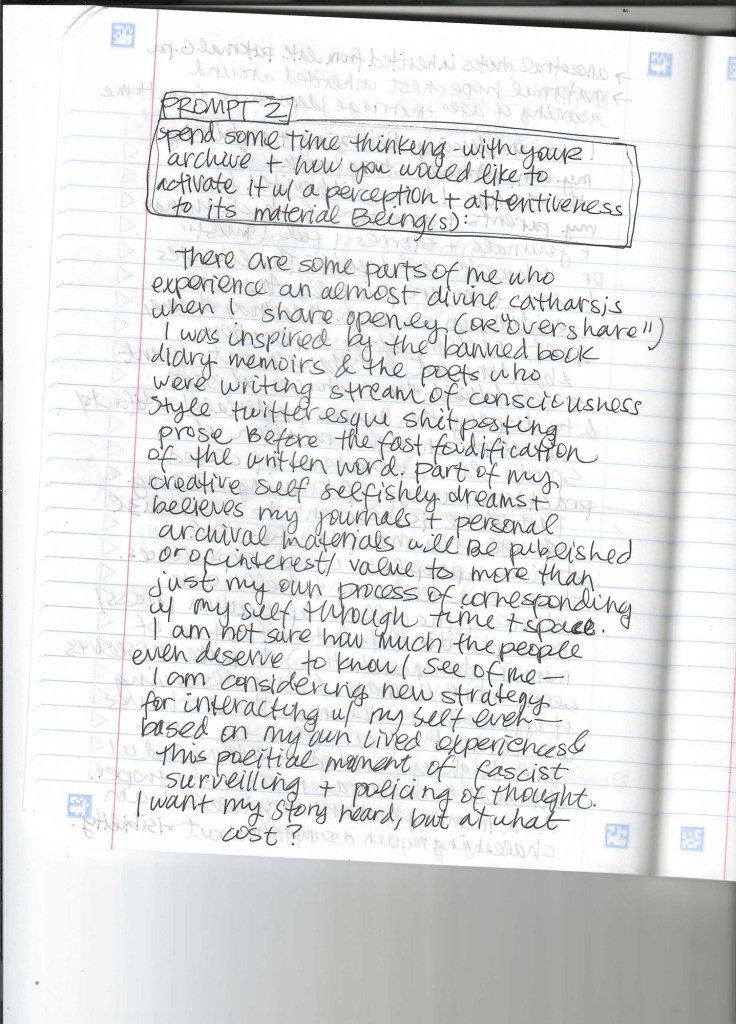 PROMPT 2
spend some time thinking-with your
archive + how you would like to
activate it w/ a perception + attentiveness
to its material Being(s):
There are some parts of me who
experience an almost divine catharsis
when I share openly (or "overshare")
I was inspired by the banned book
diary memoirs & the poets who
were writing stream of consciousness
style twitteresque shitposting
prose Before the fast foodification
of the written word. part of my
creative self selfishly dreams +
believes my journals + personal
archival materials will Be published
or of interest/value to more than
just my own process of corresponding
w/ my self through time + space.
I am not sure how much the people
even deserve to know/see of me—
I am considering new strategy
for interacting w/ my self even—
based on my own lived experiences &
this political moment of fascist
surveilling + policing of thought.
I want my story heard, but at what
cost?